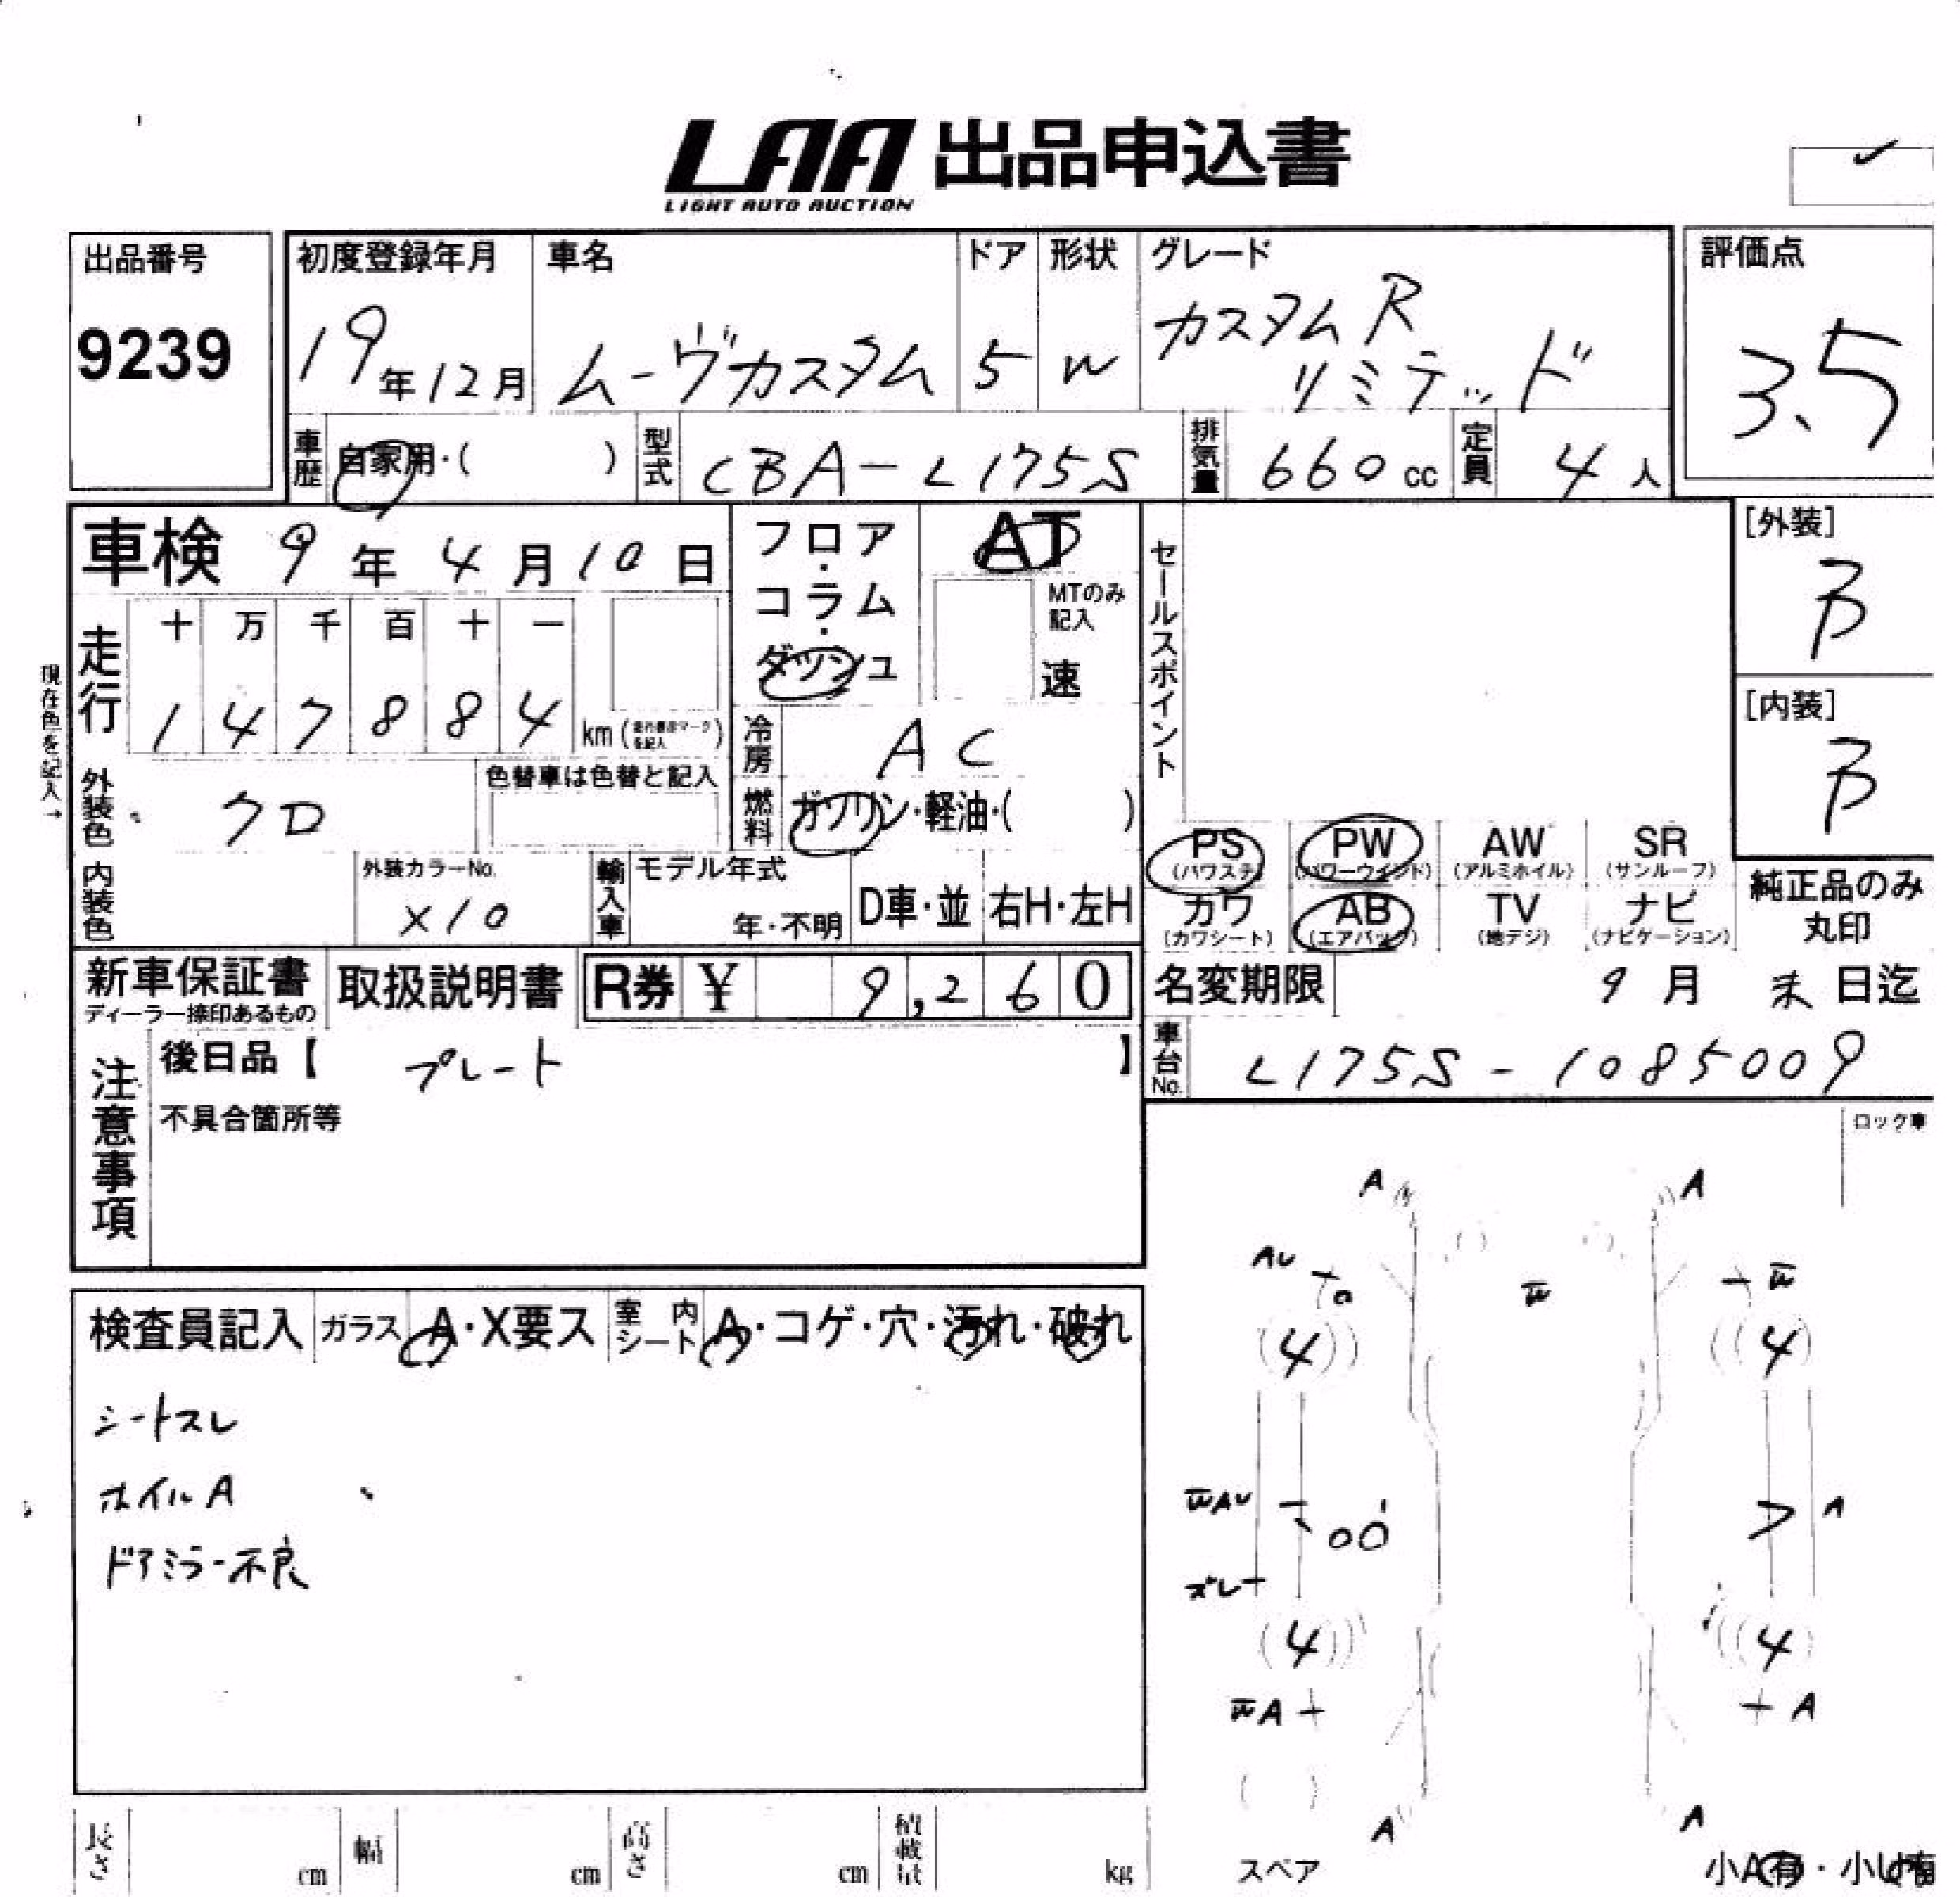 LAA 出品申込書
LIGHT AUTO AUCTION
出品番号
9239
初度登録年月
19年12月
車名
ムーヴカスタム
ドア
5
形状
W
グレード
カスタムR
リミテッド
評価点
3.5
車歴 自家用・( )
型式 CBA-L175S
排気量 660cc
定員 4人
車検 9年4月10日
フロア・コラム・ダッシュ
AT
MTのみ記入
速
セールスポイント
[外装]
B
[内装]
B
現在色を記入→
走行
十 万 千 百 十 一
1 4 7 8 8 4 km
冷房 AC
外装色 クロ
色替車は色替と記入
燃料 ガソリン・軽油・( )
内装色
外装カラーNo.
X10
輸入車
モデル年式
年・不明
D車・並
右H・左H
PS AW PW SR
(パワステ) (パワーウインド) (アルミホイル) (サンルーフ)
カワ AB TV ナビ
(カワシート) (エアバック) (地デジ) (ナビゲーション)
純正品のみ
丸印
新車保証書
ディーラー捺印あるもの
取扱説明書
R券 ¥ 9,260
名変期限 9月末日迄
注意事項
後日品【 プレート 】
不具合箇所等
車台No. L175S-1085009
ロック車
検査員記入 ガラス A・X要ス 室内シート A・コゲ・穴・汚れ・破れ
シートスレ
ホイルA
ドアミラー不良
A A
AU W W
4 4
WAU A
ズレ
4 4
WA A
A A
長さ cm 幅 cm 高さ cm 積載量 kg
スペア
小A有・小U有